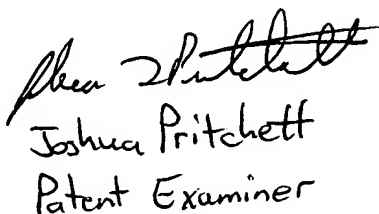 Joshua Pritchett
Patent Examiner